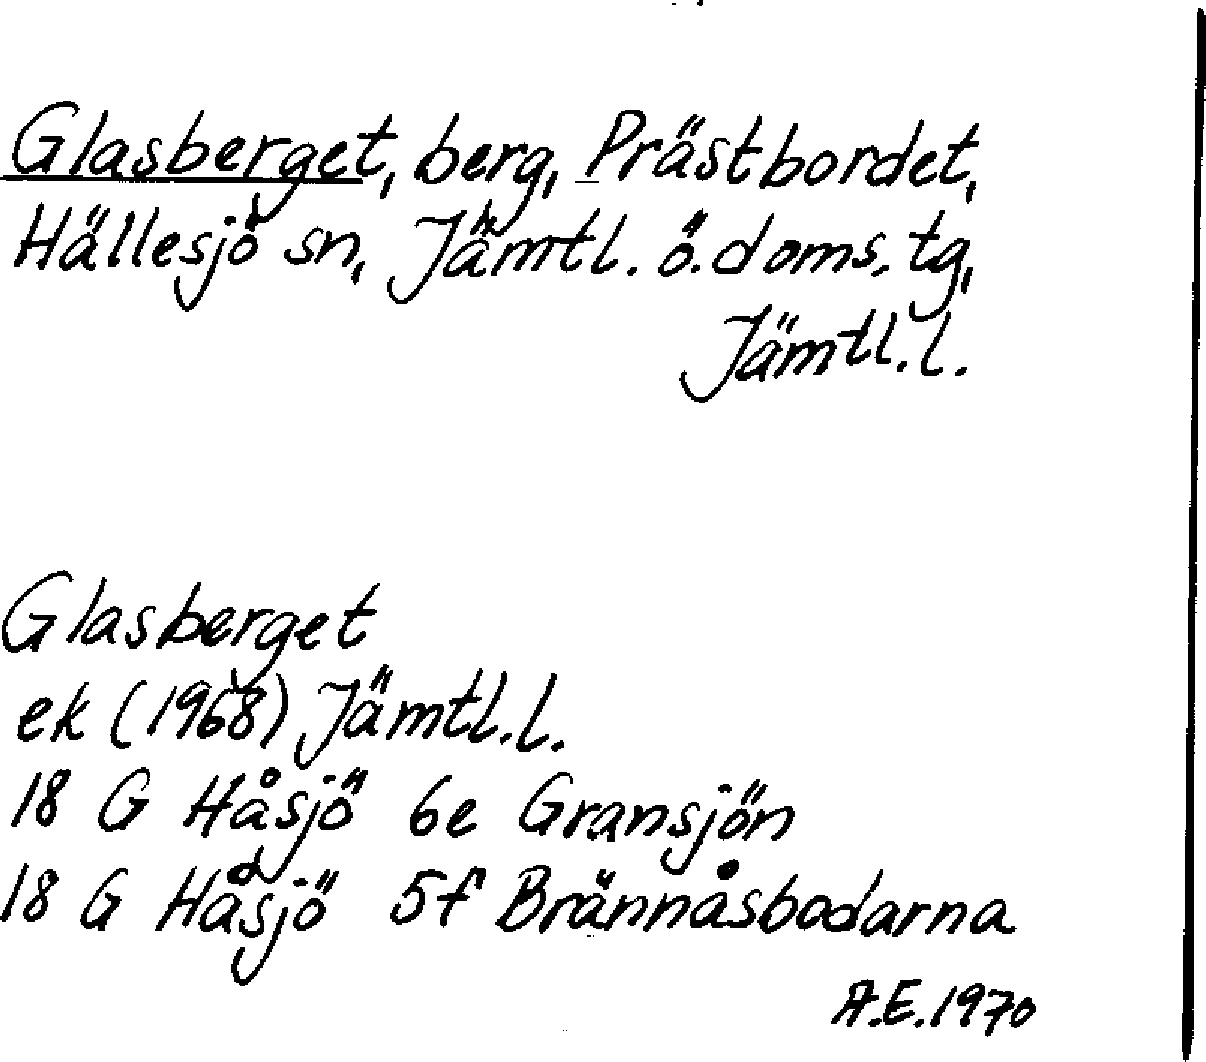 Glasberget, berg, Prästbordet,
Hällesjö sn, Jämtl. ö. doms. tg,
Jämtl. l.
Glasberget
ek (1968) Jämtl. l.
18 G Håsjö 6e Gransjön
18 G Håsjö 5f Brännåsbodarna
A.E. 1970